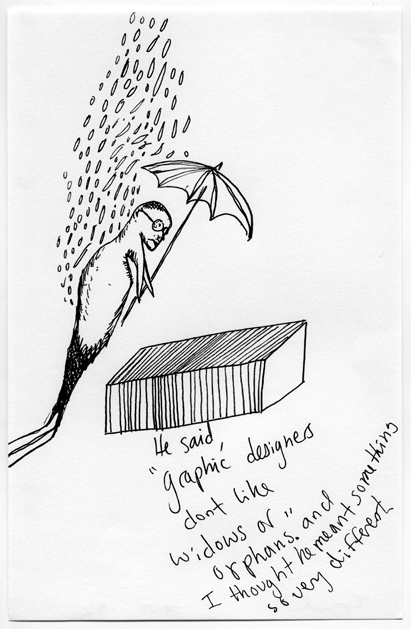 He said,
"Graphic designers
dont like
widows or"
orphans. and
I thought he meant something
so very different